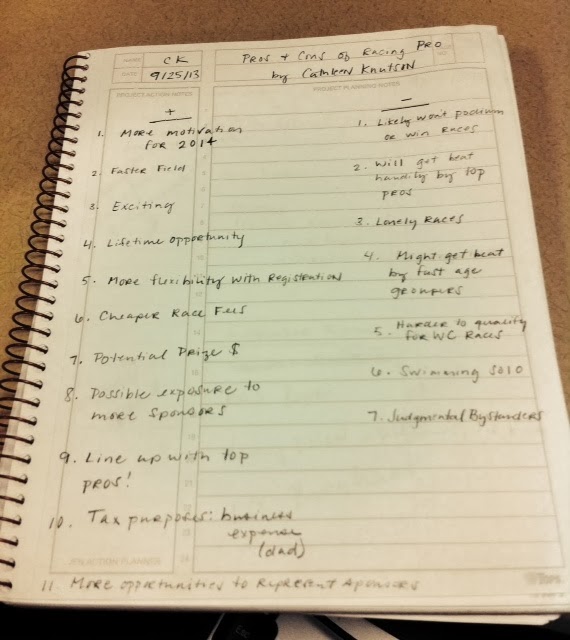 NAME CK
DATE 9/25/13
Pros + Cons of Racing Pro
by Cathleen Knutson
PROJECT ACTION NOTES
PROJECT PLANNING NOTES
+
1. More motivation
for 2014
2. Faster Field
3. Exciting
4. Lifetime opportunity
5. More flexibility with Registration
6. Cheaper Race Fees
7. Potential Prize $
8. Possible exposure to
more sponsors
9. Line up with top
pros!
10. Tax purposes: business
expense
(dad)
11. More opportunities to Represent Sponsors
—
1. Likely won't podium
or win races
2. Will get beat
handily by top
pros
3. Lonely Races
4. Might get beat
by fast age
groupers
5. Harder to qualify
for WC Races
6. Swimming solo
7. Judgmental Bystanders
ACTION PLANNER